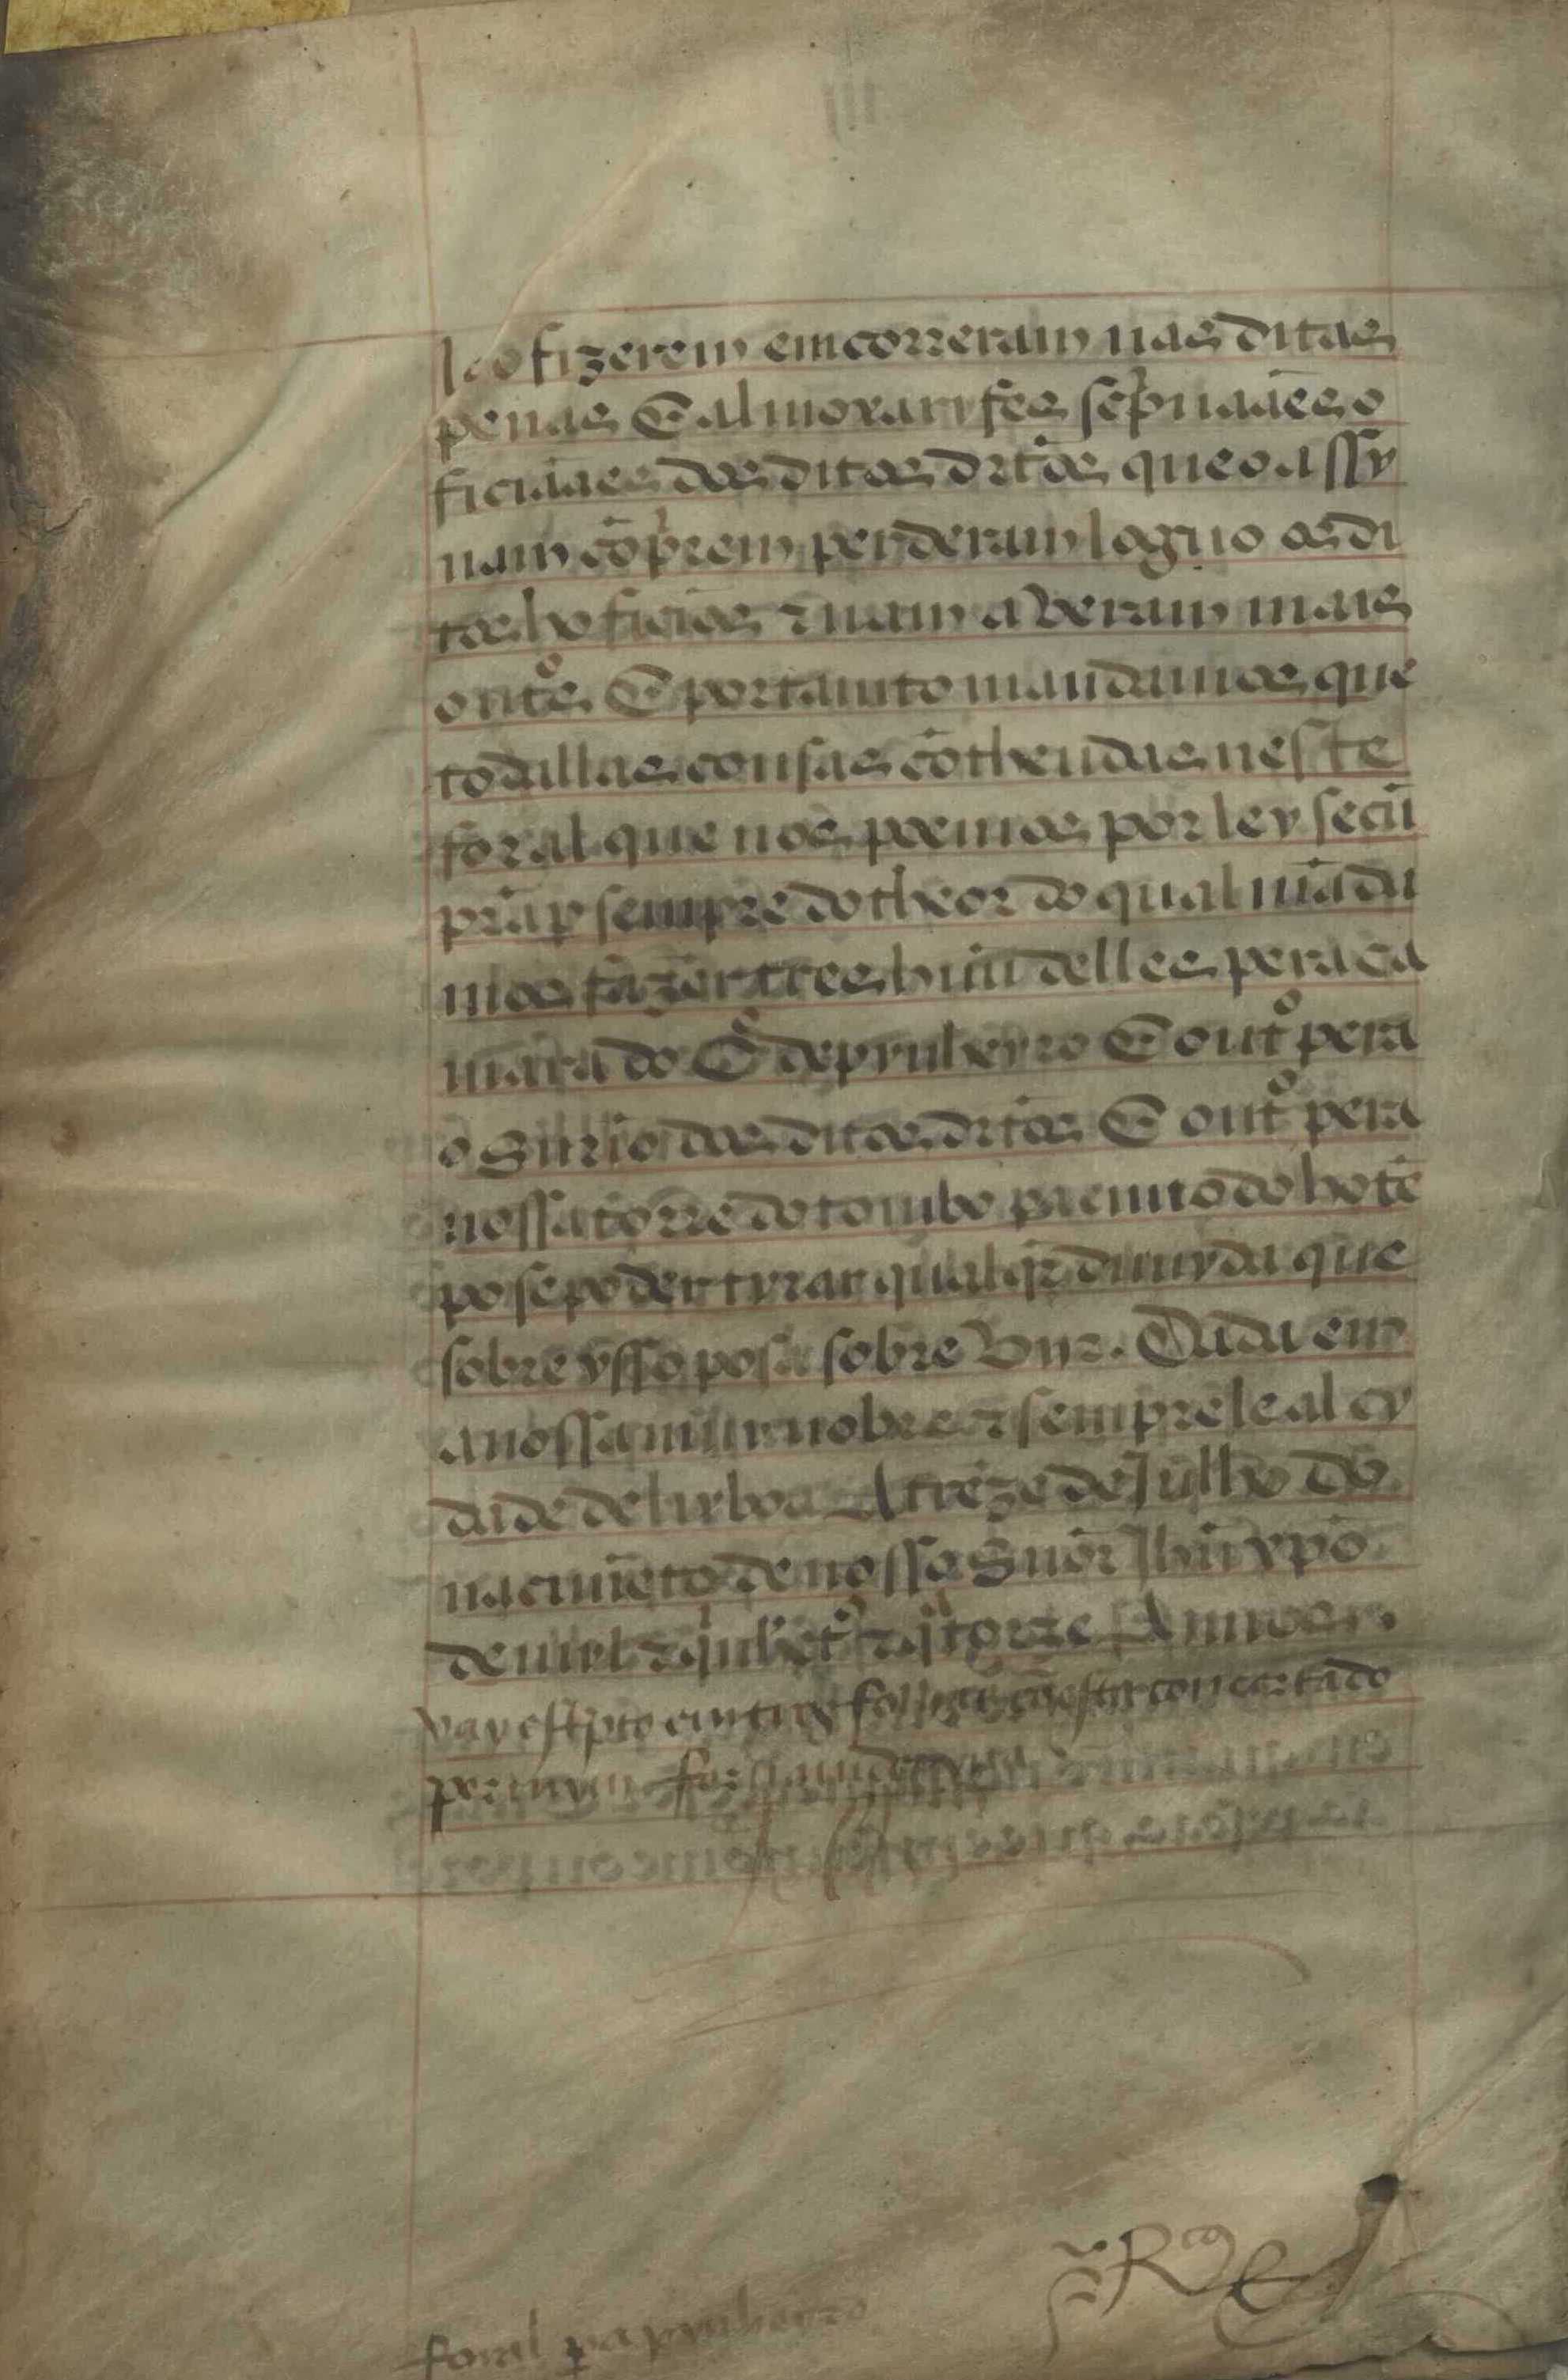 o fizerem emcorreram nas ditas
penas E almoxaryfes sepruaães o
ficiaães dos ditos drtõs que o assy
nam cõprirem perderam loguo os di
tos hoficios ⁊ nam averam mais
outos. E portamto mandamos que
todallas cousas cõthendas neste
foral que nos poemos por ley se cũ
prã p sempre do theor do qual mãda
mos fazer tres huũ delles pera a ca
mara do Cº de pynheyro E outº pera
o Snrio dos ditos drtõs E outº pera
nossa torre do tombo pa em todo ho tẽ
po se poder tyrar qualqr duuyda que
sobre ysso posa sobre vyr. Dada em
a nossa muy nobre ⁊ sempre leal cy
dade de lixboa A treze de Julho do
nacimẽto de nosso Snõr Jhũ xpõ
de myl ⁊ quinhetos ⁊ qtorze Annos
vay espto em treze folhas cõ esta concertado
per mym
foral pa pynheyro